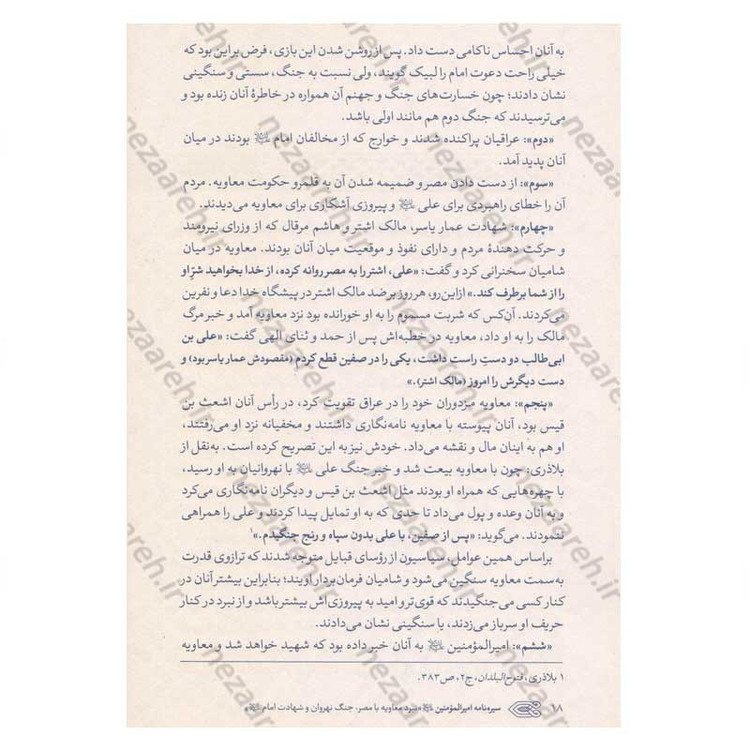 به آنان احساس ناکامی دست داد. پس از روشن شدن این بازی، فرض براین بود که
خیلی راحت دعوت امام را لبیک گویند، ولی نسبت به جنگ، سستی و سنگینی
نشان دادند؛ چون خسارت‌های جنگ و جهنم آن همواره در خاطرهٔ آنان زنده بود و
می‌ترسیدند که جنگ دوم هم مانند اولی باشد.
«دوم»: عراقیان پراکنده شدند و خوارج که از مخالفان امام ﷺ بودند در میان
آنان پدید آمد.
«سوم»: از دست دادن مصر و ضمیمه شدن آن به قلمرو حکومت معاویه. مردم
آن را خطای راهبردی برای علی و پیروزی آشکاری برای معاویه می‌دیدند.
«چهارم»: شهادت عمار یاسر، مالک اشتر و هاشم مرقال که از وزرای نیرومند
و حرکت دهندهٔ مردم و دارای نفوذ و موقعیت میان آنان بودند. معاویه در میان
شامیان سخنرانی کرد و گفت: «علی، اشتر را به مصر روانه کرده، از خدا بخواهید شرّ او
را از شما برطرف کند.» ازاین‌رو، هر روز بر ضد مالک اشتر در پیشگاه خدا دعا و نفرین
می‌کردند. آن‌کس که شربت مسموم را به او خورانده بود نزد معاویه آمد و خبر مرگ
مالک را به او داد، معاویه در خطبه‌اش پس از حمد و ثنای الهی گفت: «علی بن
ابی‌طالب دو دستِ راست داشت، یکی را در صفین قطع کردم (مقصودش عمار یاسر بود) و
دست دیگرش را امروز (مالک اشتر).»
«پنجم»: معاویه مزدوران خود را در عراق تقویت کرد، در رأس آنان اشعث بن
قیس بود، آنان پیوسته با معاویه نامه‌نگاری داشتند و مخفیانه نزد او می‌رفتند،
او هم به اینان مال و نقشه می‌داد. خودش نیز به این تصریح کرده است. به‌نقل از
بلاذری: چون با معاویه بیعت شد و خبر جنگ علی با نهروانیان به او رسید،
با چهره‌هایی که همراه او بودند مثل اشعث بن قیس و دیگران نامه‌نگاری می‌کرد
و به آنان وعده و پول می‌داد تا حدی که به او تمایل پیدا کردند و علی را همراهی
ننمودند. می‌گوید: «پس از صفین، با علی بدون سپاه و رنج جنگیدم.»۱
براساس همین عوامل، سیاسیون از رؤسای قبایل متوجه شدند که ترازوی قدرت
به سمت معاویه سنگین می‌شود و شامیان فرمان‌بردار اویند؛ بنابراین بیشتر آنان در
کنار کسی می‌جنگیدند که قوی‌تر و امید به پیروزی‌اش بیشتر باشد و از نبرد در کنار
حریف او سرباز می‌زدند، یا سنگینی نشان می‌دادند.
«ششم»: امیرالمؤمنین به آنان خبر داده بود که شهید خواهد شد و معاویه
۱ بلاذری، فتوح البلدان، ج۲، ص۳۸۳.
۱۸ سیره‌نامه امیرالمؤمنین «نبرد معاویه با مصر، جنگ نهروان و شهادت امام»
nezaareh.ir